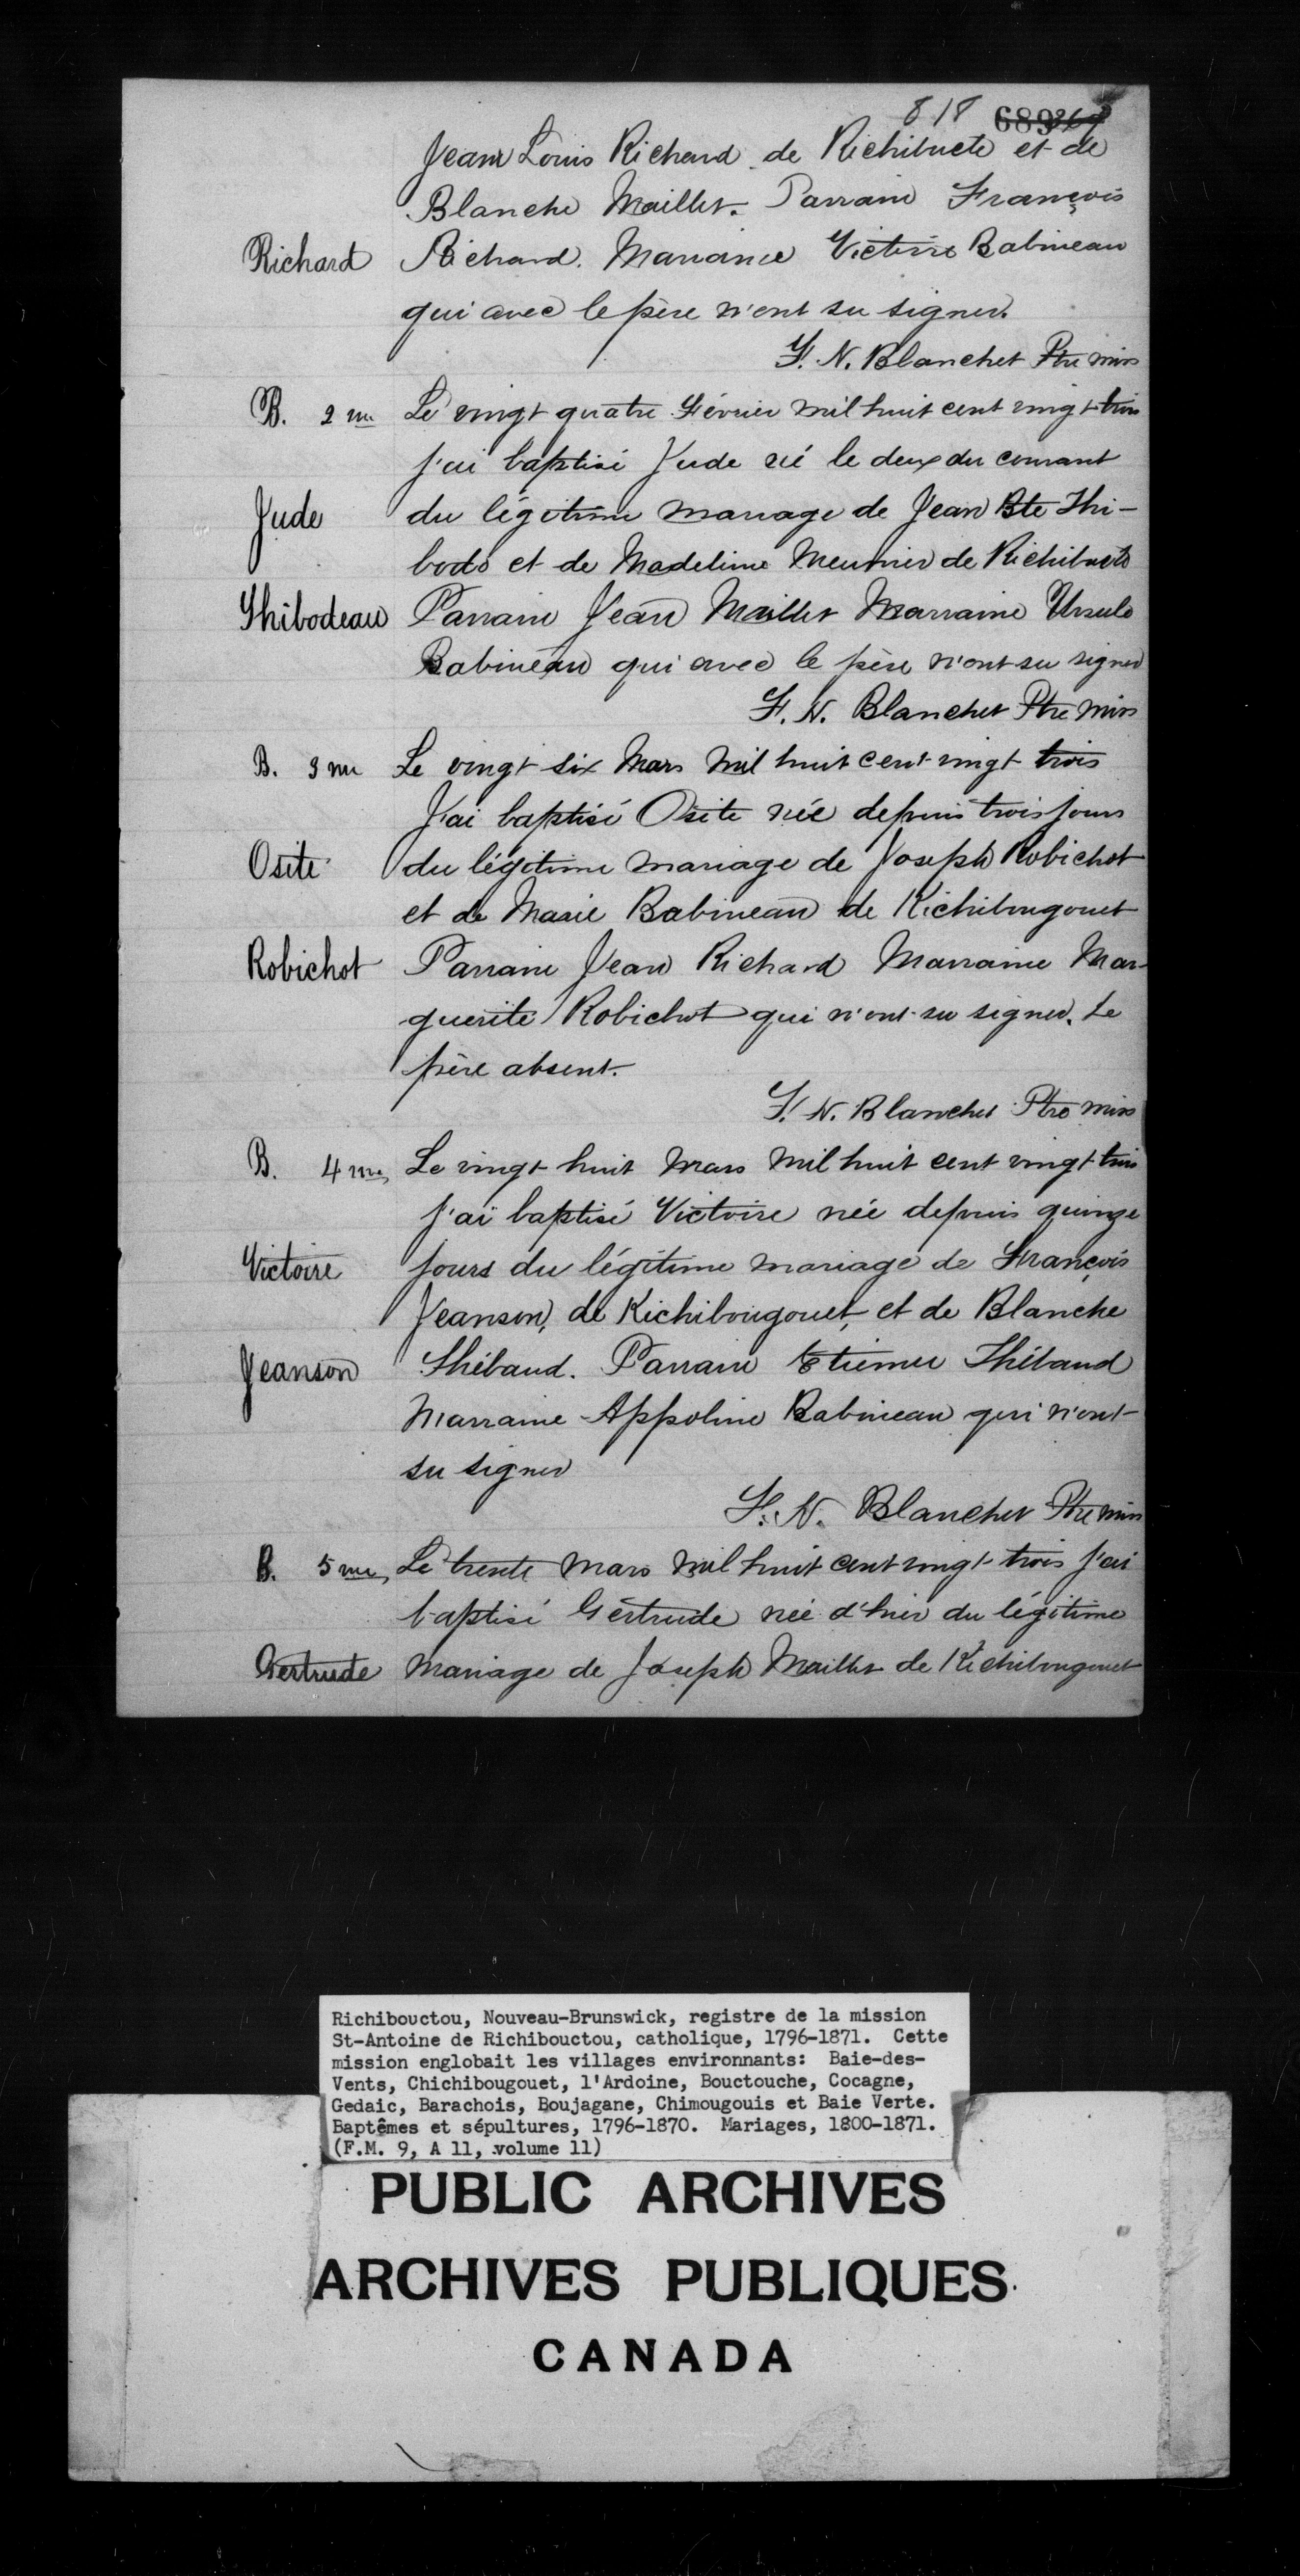 818 689
Jean Louis Richard de Richibucto et de
Blanche Maillet. Parrain François
Richard Richard. Marraine Victoire Babineau
qui avec le père n'ont su signer.
F. N. Blanchet Ptre miss
B. 2me Le vingt quatre Février mil huit cent vingt trois
j'ai baptisé Jude né le deux du courant
Jude du légitime mariage de Jean Bte Thi-
bodo et de Madeleine Meunier de Richibucto
Thibodeau Parrain Jean Maillet Marraine Ursule
Babineau qui avec le père n'ont su signer
F. N. Blanchet Ptre Miss
B. 3me Le vingt six Mars mil huit cent vingt trois
J'ai baptisé Osite née depuis trois jours
Osite du légitime mariage de Joseph Robichot
et de Marie Babineau de Richibougouet
Robichot Parrain Jean Richard Marraine Mar-
guerite Robichot qui n'ont su signer. Le
père absent.
F. N. Blanchet Ptre miss
B. 4me Le vingt huit Mars mil huit cent vingt trois
j'ai baptisé Victoire née depuis quinze
Victoire jours du légitime mariage de François
Jeanson, de Richibougouet, et de Blanche
Jeanson Thibaud. Parrain Etienne Thibaud
Marraine Appoline Babineau qui n'ont
su signer
F. N. Blanchet Ptre miss
B. 5me Le trente Mars mil huit cent vingt trois j'ai
baptisé Gertrude née d'hier du légitime
Gertrude mariage de Joseph Maillet de Richibougouet
Richibouctou, Nouveau-Brunswick, registre de la mission
St-Antoine de Richibouctou, catholique, 1796-1871. Cette
mission englobait les villages environnants: Baie-des-
Vents, Chichibougouet, l'Ardoine, Bouctouche, Cocagne,
Gedaic, Barachois, Boujagane, Chimougouis et Baie Verte.
Baptêmes et sépultures, 1796-1870. Mariages, 1800-1871.
(F.M. 9, A 11, volume 11)
PUBLIC ARCHIVES
ARCHIVES PUBLIQUES
CANADA